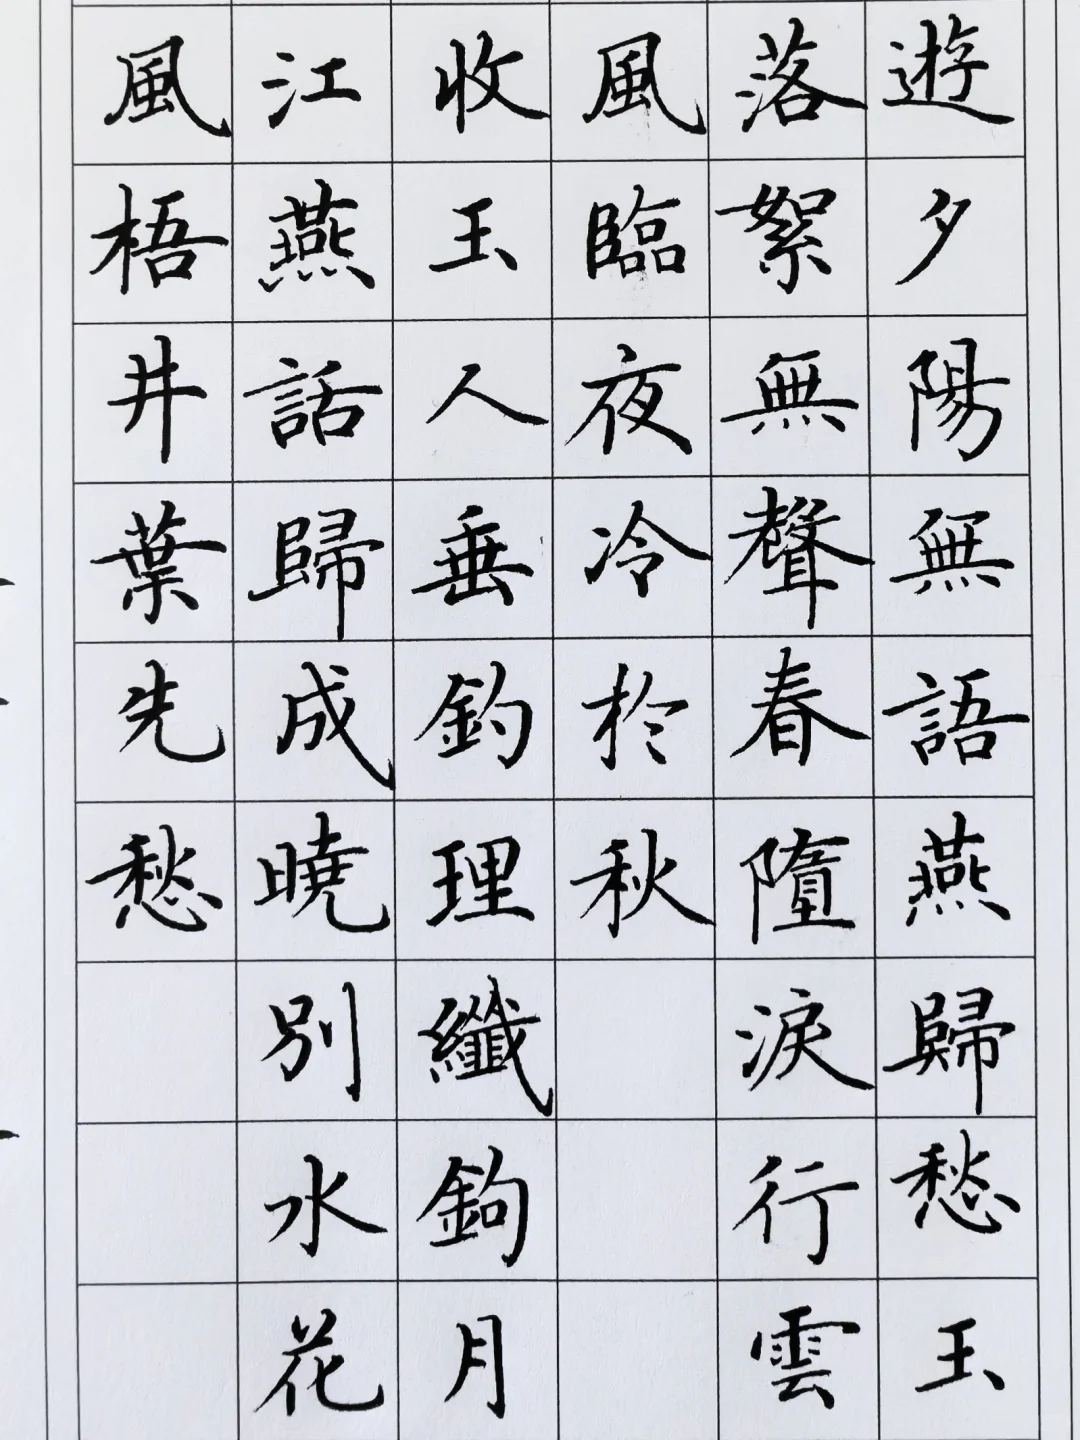 遊夕陽無語燕歸愁玉
落絮無聲春墮淚行雲
風臨夜冷於秋
收玉人垂釣理纖鉤月
江燕話歸成曉別水花
風梧井葉先愁